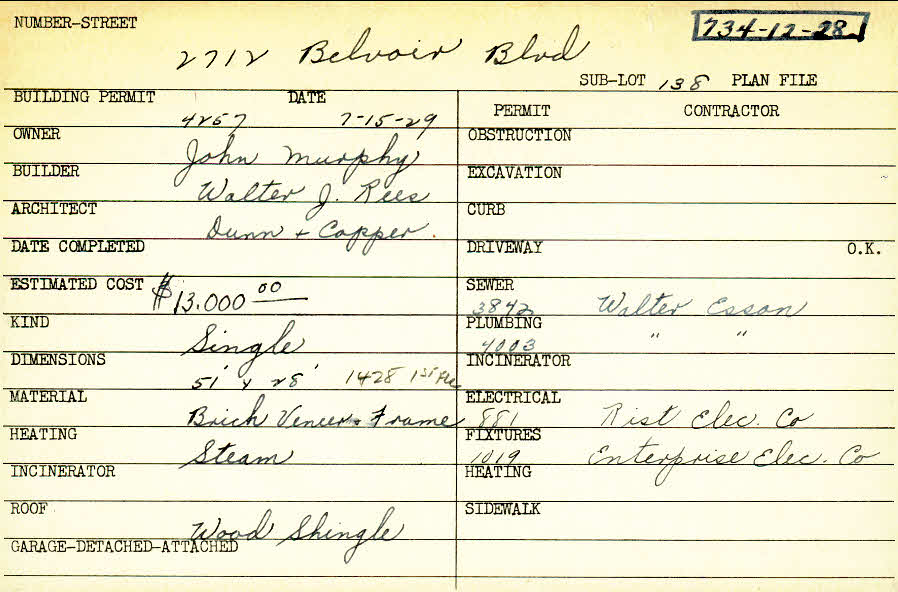 NUMBER-STREET 734-12-28
2712 Belvoir Blvd
SUB-LOT 138 PLAN FILE
BUILDING PERMIT DATE
4267 7-15-29
PERMIT CONTRACTOR
OWNER John Murphy
OBSTRUCTION
BUILDER Walter J. Rees
EXCAVATION
ARCHITECT Dunn + Copper.
CURB
DATE COMPLETED
DRIVEWAY O.K.
ESTIMATED COST $13.000 00
SEWER 3842 Walter Esson
KIND Single
PLUMBING 4003 " "
DIMENSIONS 51' x 28' 1428 1st Flr
INCINERATOR
MATERIAL Brick Veneer & Frame
ELECTRICAL 881 Rist Elec. Co
HEATING Steam
FIXTURES 1019 Enterprise Elec. Co
INCINERATOR
HEATING
ROOF Wood Shingle
SIDEWALK
GARAGE-DETACHED-ATTACHED